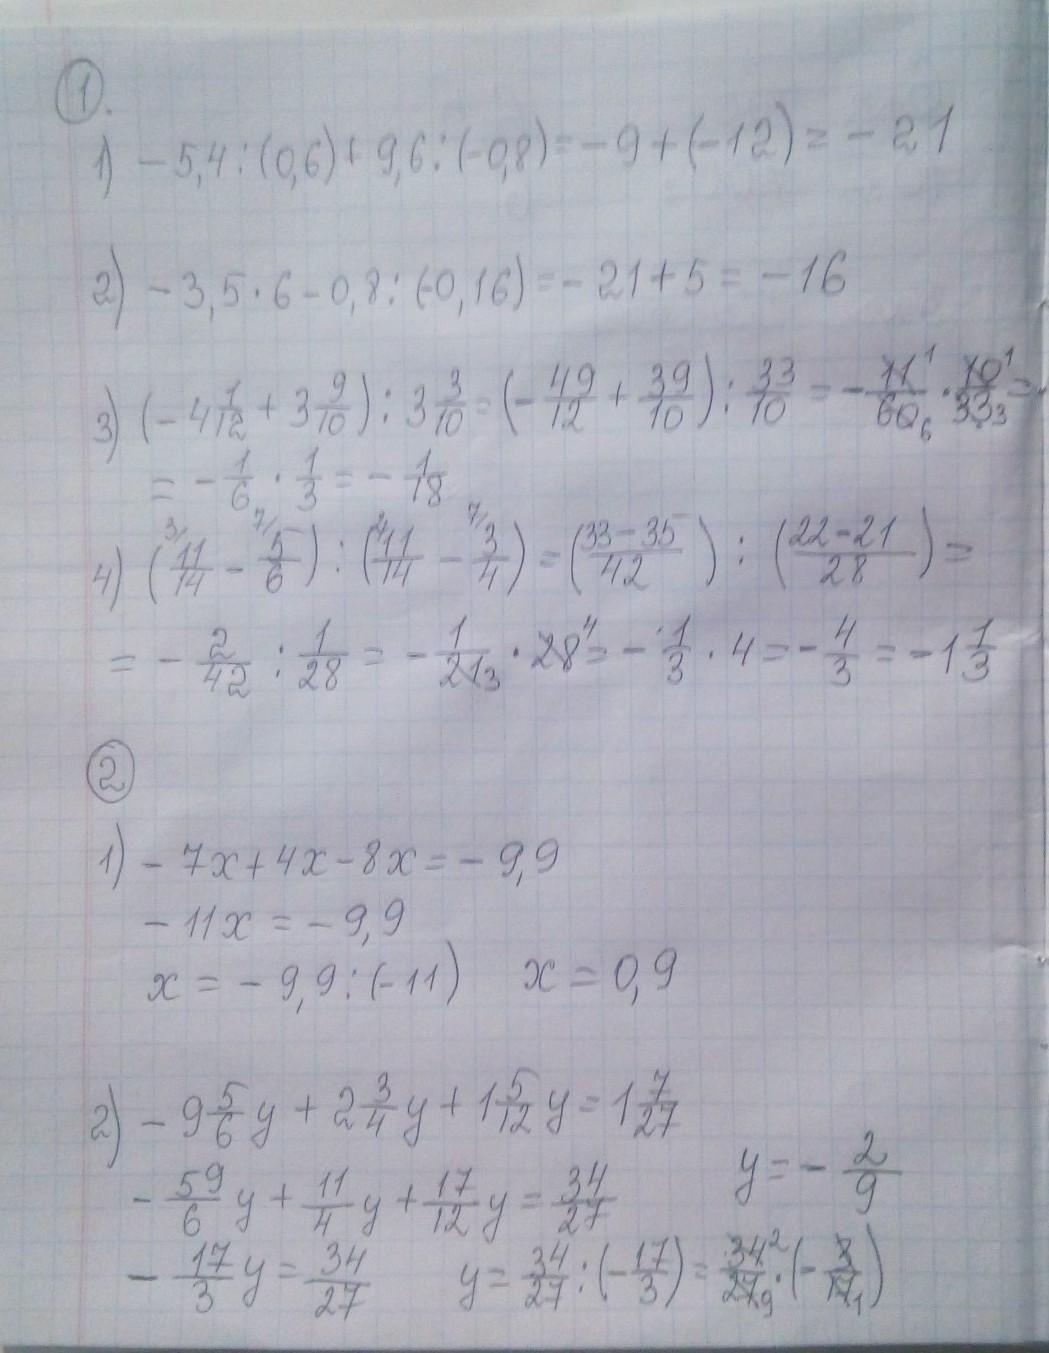 1.
1) - 5,4 : (0,6) + 9,6 : (-0,8) = - 9 + (-12) = - 21
2) - 3,5 · 6 - 0,8 : (-0,16) = - 21 + 5 = - 16
3) (- 4 1/12 + 3 9/10) : 3 3/10 = (- 49/12 + 39/10) : 33/10 = - 11/60 · 10/33 =
= - 1/6 · 1/3 = - 1/18
4) (11/14 - 5/6) : (11/14 - 3/4) = (33-35/42) : (22-21/28) =
= - 2/42 : 1/28 = - 1/21 · 28 = - 1/3 · 4 = - 4/3 = - 1 1/3
2
1) - 7x + 4x - 8x = - 9,9
- 11x = - 9,9
x = - 9,9 : (-11) x = 0,9
2) - 9 5/6 y + 2 3/4 y + 1 5/12 y = 1 7/27
- 59/6 y + 11/4 y + 17/12 y = 34/27 y = - 2/9
- 17/3 y = 34/27 y = 34/27 : (- 17/3) = 34/27 · (- 3/17)